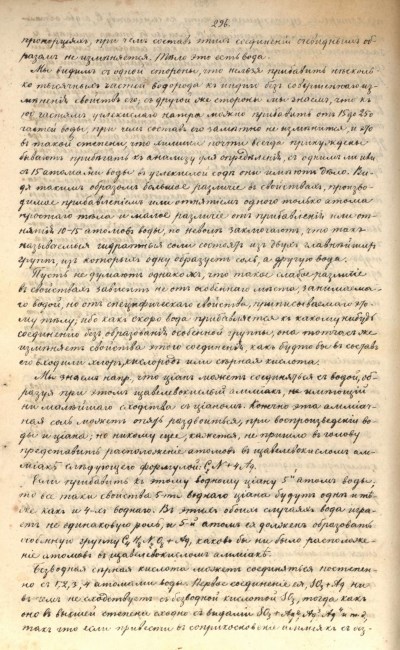 296.
пропорціямъ, при чемъ составъ этихъ соединеній очевиднымъ об-
разомъ не измѣняется. Тѣло это есть вода.
Мы видимъ съ одной стороны, что нельзя прибавить нѣсколь-
ко тысячныхъ частей водорода къ нефти безъ совершеннаго из-
мѣненія свойствъ его, съ другой же стороны мы знаемъ, что къ
100 частямъ углекислаго натра можно прибавить отъ 15 до 250
частей воды, при чемъ составъ его замѣтно не измѣнится, и это
въ такой степени, что химики почти всегда принуждены
бываютъ прибѣгать къ анализу для опредѣленія, съ однимъ ли или
съ 15 атомами воды въ углекислой содѣ они имѣютъ дѣло. Ви-
дя такимъ образомъ большое различіе въ свойствахъ, произво-
димое прибавленіемъ или отнятіемъ одного только атома
простаго тѣла и малое различіе отъ прибавленія или от-
нятія 10-15 атомовъ воды, по неволѣ заключаютъ, что такъ
называемыя гидратныя соли состоятъ изъ двухъ главнѣйшихъ
группъ, изъ которыхъ одну образуетъ соль, а другую вода.
Пусть не думаютъ однакожъ, что такое слабое различіе
въ свойствахъ зависитъ не отъ особеннаго мѣста, занимаема-
го водой, но отъ специфическаго свойства, приписываемаго это-
му тѣлу; ибо какъ скоро вода прибавляется къ какому нибудь
соединенію безъ образованія особенной группы, она тотчасъ же
измѣняетъ свойства этого соединенія, какъ будто бы въ составъ
его входили хлоръ, кислородъ или сѣрная кислота.
Мы знаемъ напр., что ціанъ можетъ соединяться съ водой, об-
разуя при этомъ щавелевокислый амміакъ, не имѣющій
ни малѣйшаго сходства съ ціаномъ. Конечно эта амміач-
ная соль можетъ опять раздвоиться, при воспроизведеніи во-
ды и ціана; но никому еще, кажется, не пришло въ голову
представить расположеніе атомовъ въ щавелевокисломъ ам-
міакѣ слѣдующею формулою: C₂N + 4Aq.
Если прибавить къ этому водному ціану 5ый атомъ воды,
то все таки свойства 5-ти воднаго ціана будутъ одни и тѣ
же какъ и 4-хъ воднаго. Въ этихъ обоихъ случаяхъ вода игра-
етъ не одинаковую роль, и 5ый атомъ ея долженъ образовать
особенную группу + Aq, каково бы ни было расположе-
ніе атомовъ въ щавелевокисломъ амміакѣ.
Безводная сѣрная кислота можетъ соединяться постепен-
но съ 1, 2, 3, 4 атомами воды. Первое соединеніе ея, SO₃ + Aq ни
въ чемъ не сходствуетъ съ безводной кислотой SO₃, тогда какъ
оно въ высшей степени сходно съ видами SO₃ + Aq² Aq³ Aq⁴ и т. д.,
такъ что если привести въ соприкосновеніе химически съ